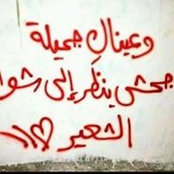 وعيناك جميلة
كجحشي ينظر إلى شوا
الشعير